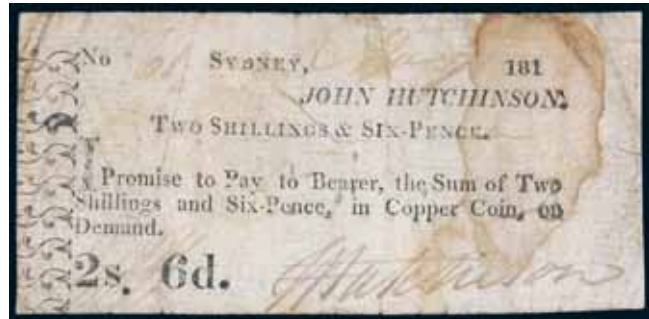 No SYDNEY, 181
JOHN HUTCHINSON.
TWO SHILLINGS & SIX-PENCE.
I Promise to Pay to Bearer, the Sum of Two
Shillings and Six-Pence, in Copper Coin, on
Demand.
2s. 6d. J Hutchinson